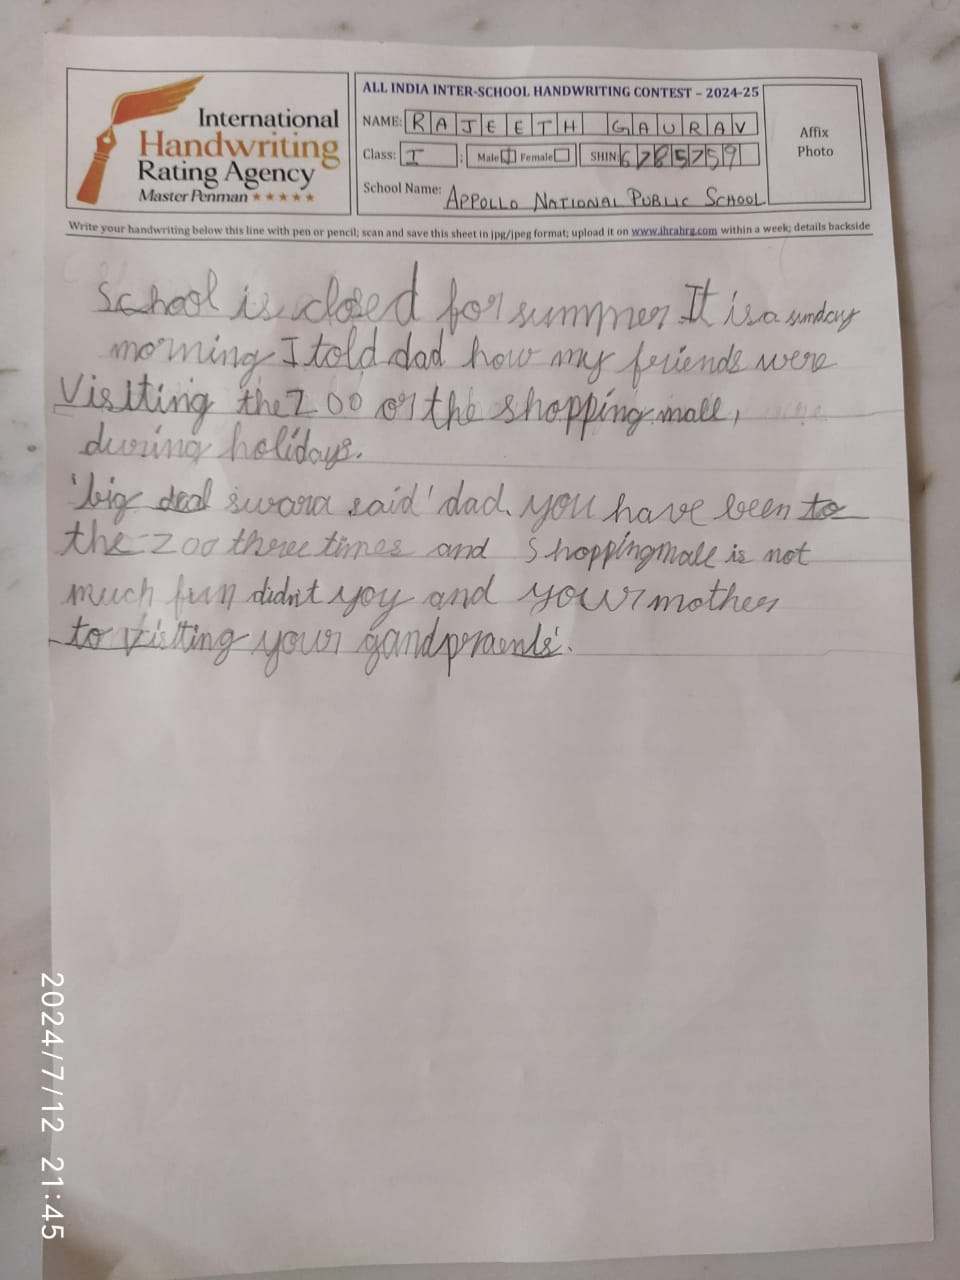 International
Handwriting
Rating Agency
Master Penman ★★★★★
ALL INDIA INTER-SCHOOL HANDWRITING CONTEST – 2024-25
NAME: RAJEETH GAURAV
Class: I : Male Female SHIN 6785759
School Name: APPOLLO NATIONAL PUBLIC SCHOOL
Affix
Photo
Write your handwriting below this line with pen or pencil; scan and save this sheet in jpg/jpeg format; upload it on www.ihrahrg.com within a week; details backside
School is closed for summer It is a sunday
morning I told dad how my friends were
Visiting the zoo or the shopping mall,
during holidays.
'big deal swara said' dad. you have been to
the zoo three times and shopping mall is not
much fun didnt yoy and your mother
to visiting your gandpraents'.
2024/7/12 21:45